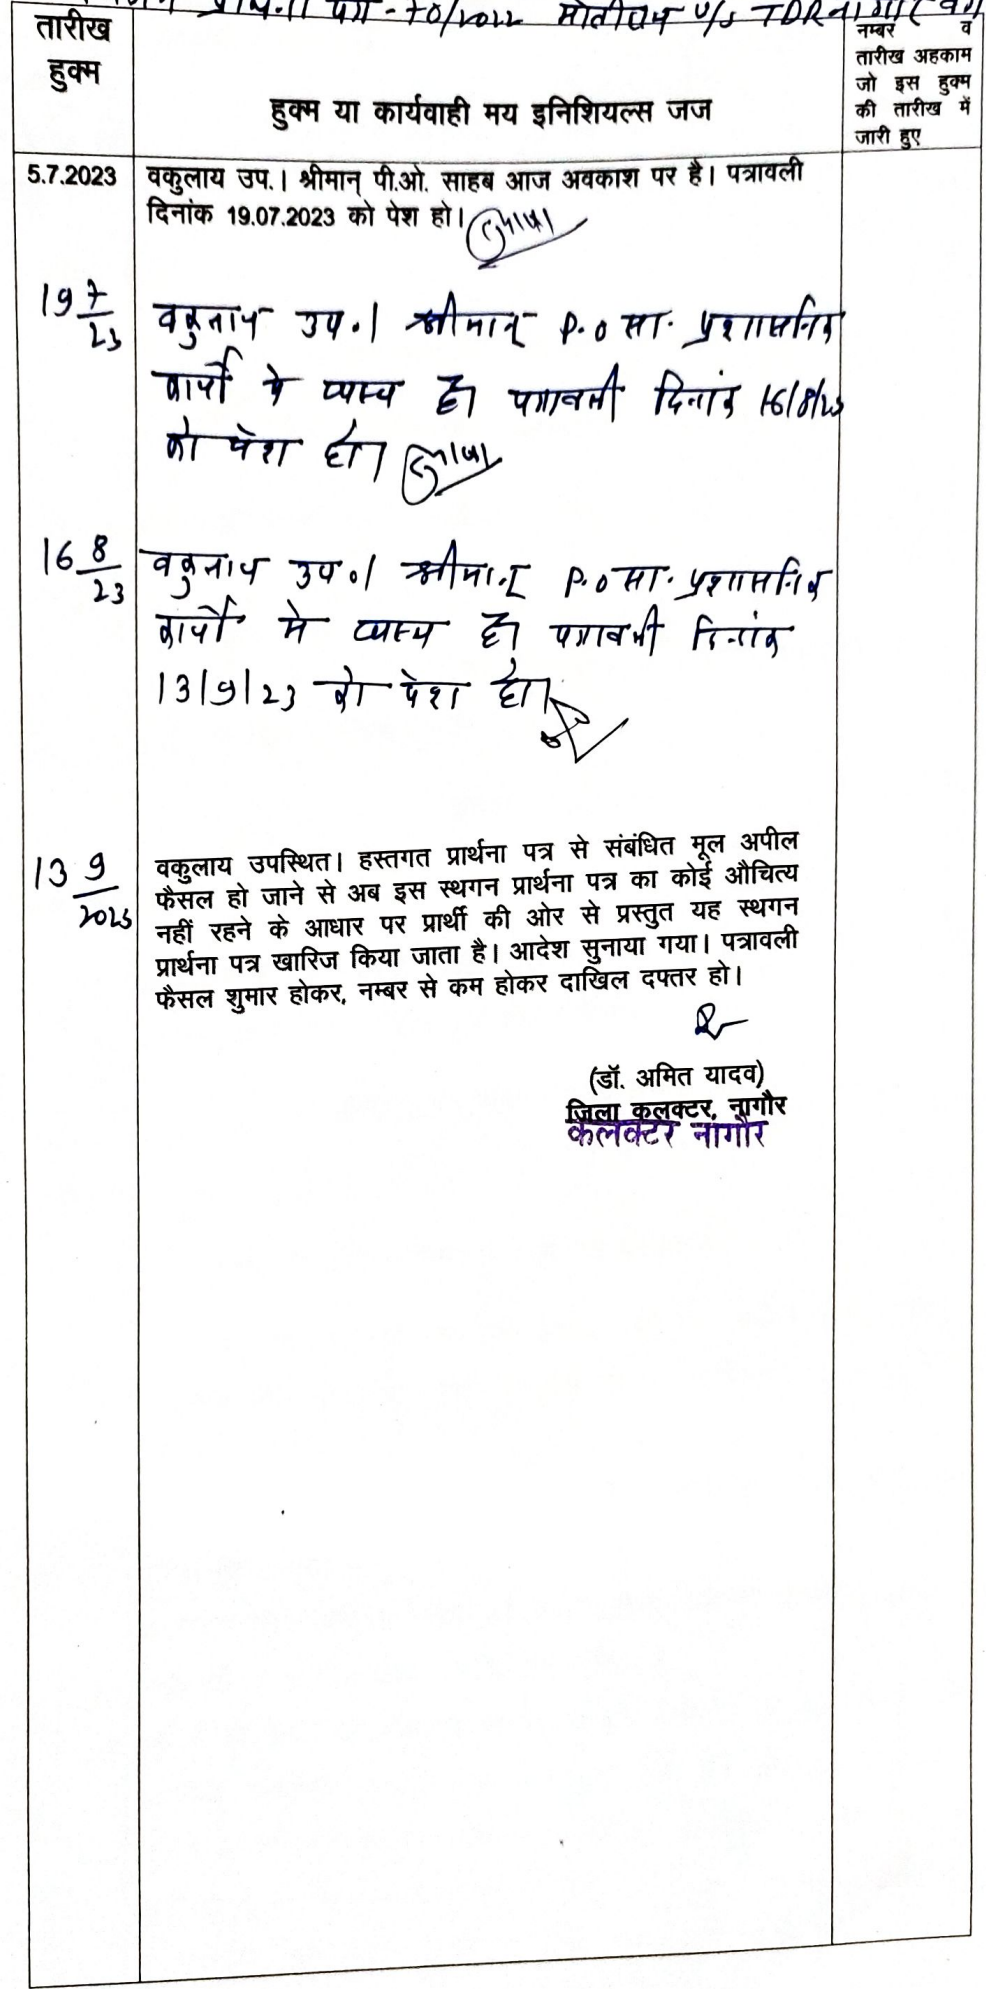 प्रार्थना पत्र - 70/2022 मोतीराम v/s TDR नागौर
तारीख
हुक्म
हुक्म या कार्यवाही मय इनिशियल्स जज
नम्बर व
तारीख अहकाम
जो इस हुक्म
की तारीख में
जारी हुए
5.7.2023 वकुलाय उप.। श्रीमान् पी.ओ. साहब आज अवकाश पर है। पत्रावली
दिनांक 19.07.2023 को पेश हो।
19 7/23 वकुलाय उप.। श्रीमान् P.O सा. प्रशासनिक
कार्यो मे व्यस्त है। पत्रावली दिनांक 16/8/23
को पेश हो।
16 8/23 वकुलाय उप.। श्रीमान् P.O सा. प्रशासनिक
कार्यो मे व्यस्त है। पत्रावली दिनांक
13/9/23 को पेश हो।
13 9/2023 वकुलाय उपस्थित। हस्तगत प्रार्थना पत्र से संबंधित मूल अपील
फैसल हो जाने से अब इस स्थगन प्रार्थना पत्र का कोई औचित्य
नहीं रहने के आधार पर प्रार्थी की ओर से प्रस्तुत यह स्थगन
प्रार्थना पत्र खारिज किया जाता है। आदेश सुनाया गया। पत्रावली
फैसल शुमार होकर, नम्बर से कम होकर दाखिल दफ्तर हो।
(डॉ. अमित यादव)
जिला कलक्टर, नागौर
कलक्टर नागौर